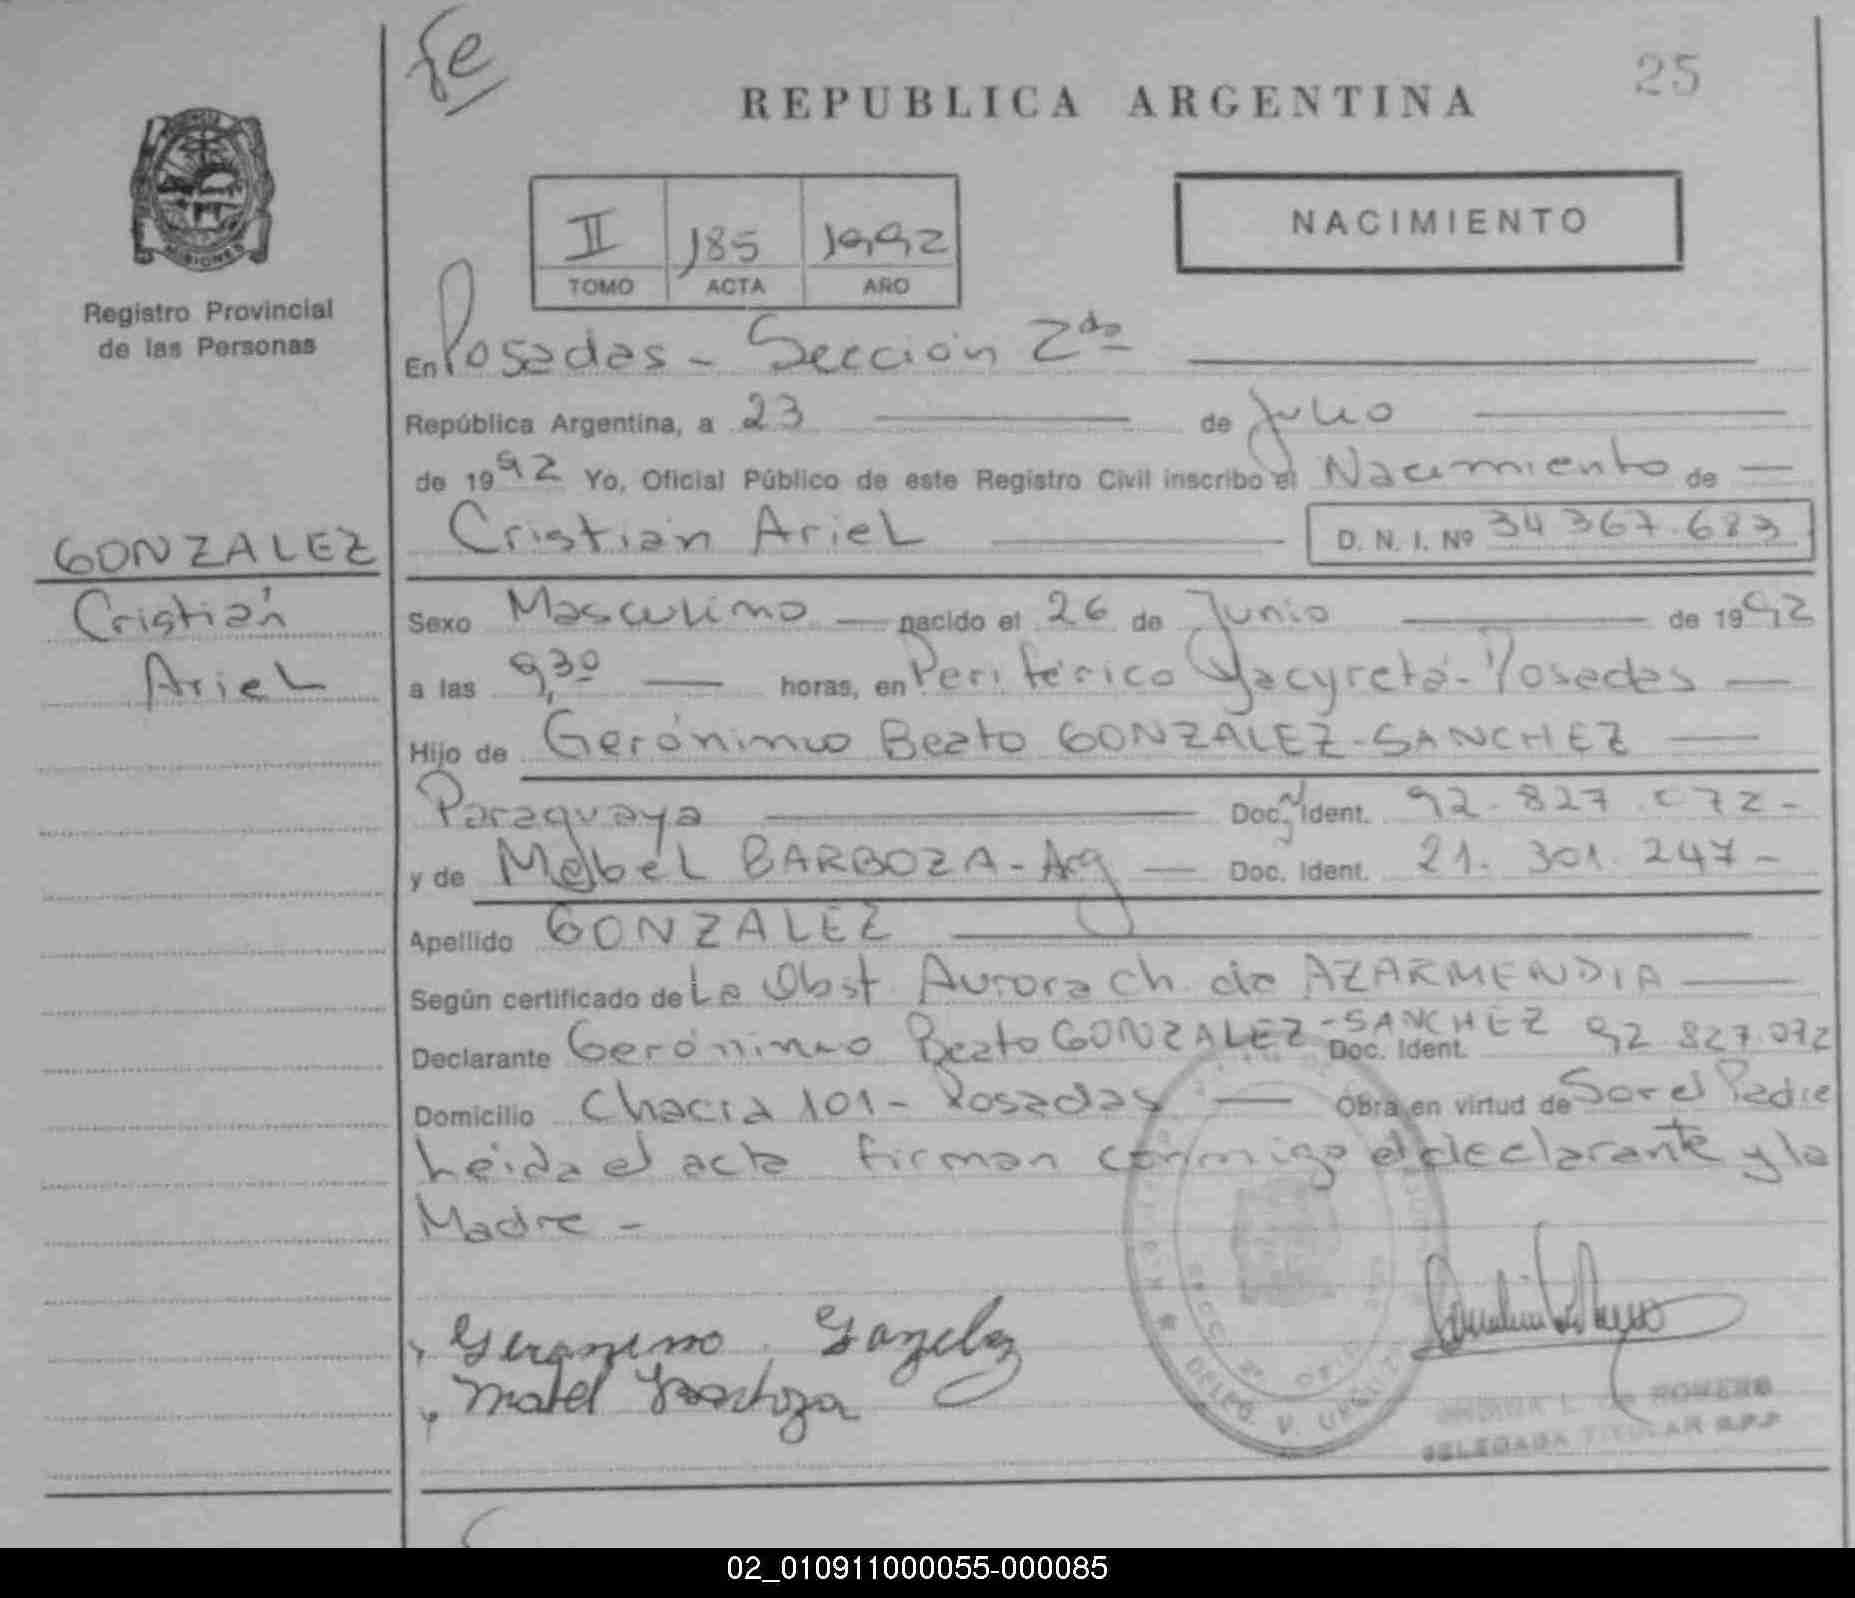 fe
25
REPUBLICA ARGENTINA
MISIONES
Registro Provincial
de las Personas
II 185 1992
TOMO ACTA AÑO
NACIMIENTO
En Posadas - Sección 2da
República Argentina, a 23 de Julio
de 1992 Yo, Oficial Público de este Registro Civil inscribo el Nacimiento de
Cristian Ariel D. N. I. Nº 34 367.683
GONZALEZ
Cristian
Ariel
Sexo Masculino nacido el 26 de Junio de 1992
a las 9,30 horas, en Periférico Yacyretá - Posadas
Hijo de Gerónimo Beato GONZALEZ-SANCHEZ
Paraguaya Doc. Ident. 92.827.072-
y de Mabel BARBOZA - Arg Doc. Ident. 21.301.247-
Apellido GONZALEZ
Según certificado de La Obst. Aurora Ch. de AZARMENDIA
Declarante Gerónimo Beato GONZALEZ-SANCHEZ Doc. Ident. 92 827.072
Domicilio Chacra 101 - Posadas Obra en virtud de Ser el Padre
Leida el acta firman conmigo el declarante y la
Madre -
Geronimo Gonzalez
Mabel Barboza
DE ROMERO
DELEGADA TITULAR R.P.P
02_010911000055-000085